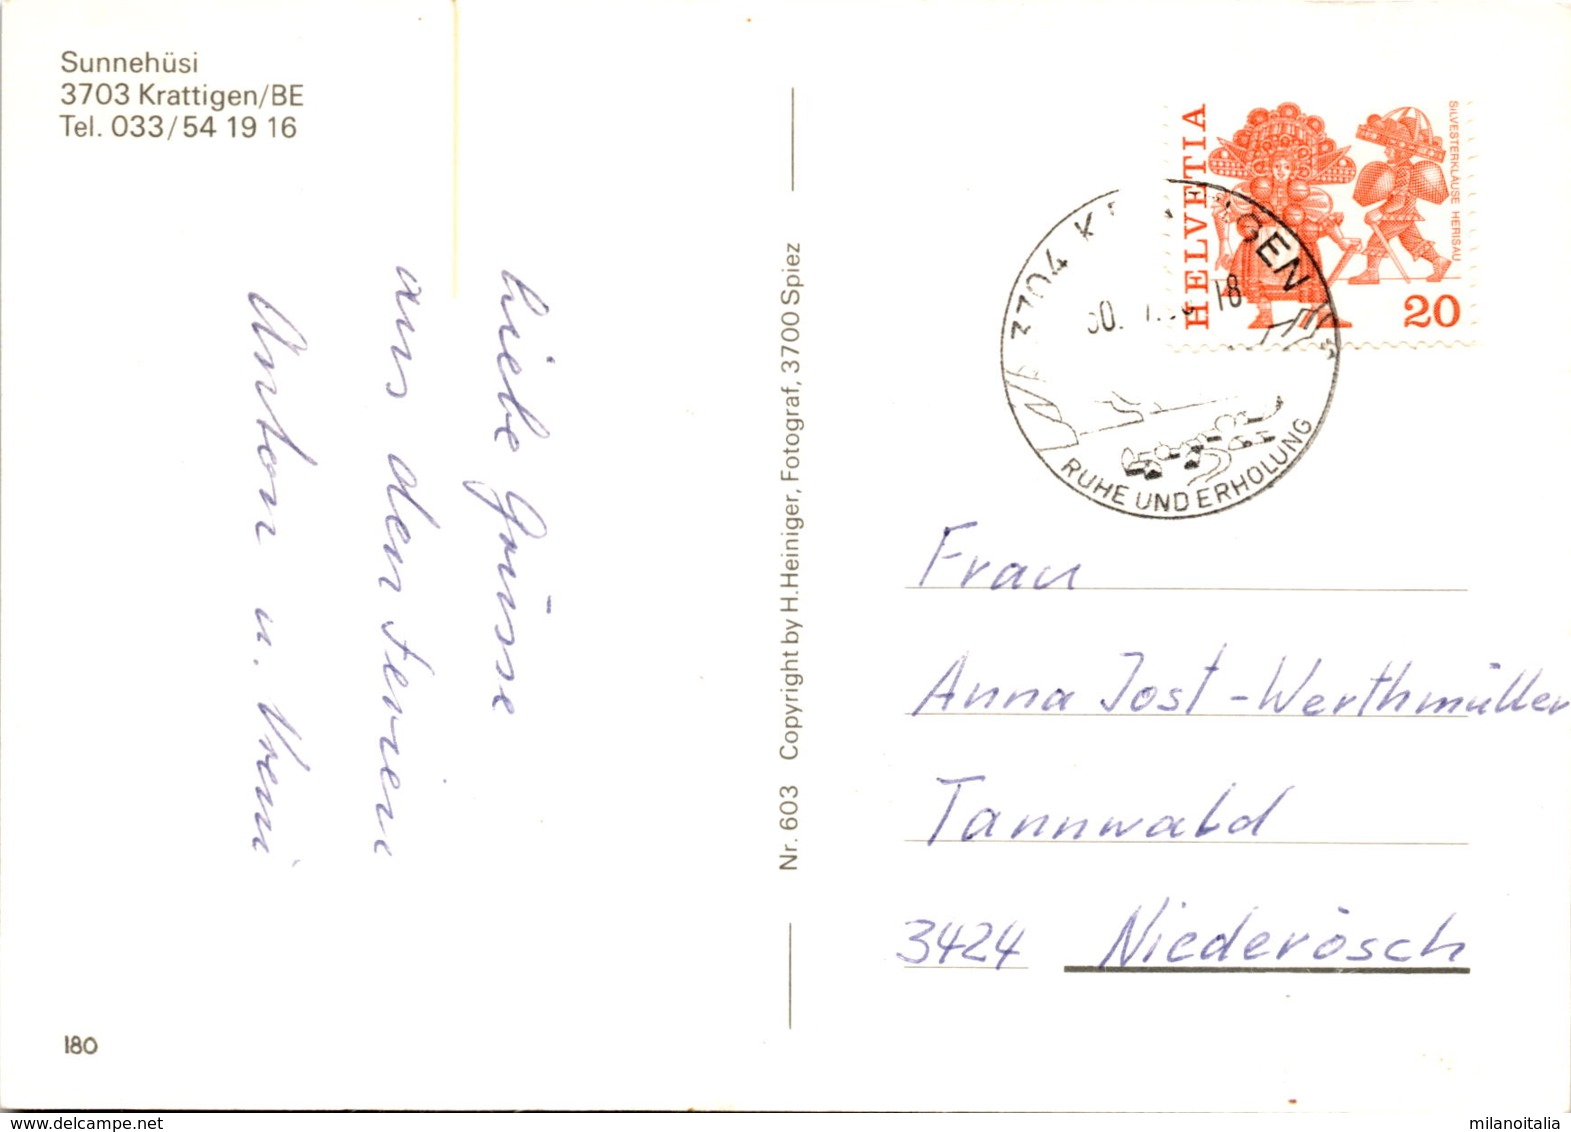 Sunnehüsi
3703 Krattigen/BE
Tel. 033/54 19 16
liebe Grüsse
aus den Ferien
Anton u. Vreni
180
Nr. 603 Copyright by H.Heiniger, Fotograf, 3700 Spiez
HELVETIA
SILVESTERKLÄUSE HERISAU
20
3704 K
GEN
18
RUHE UND ERHOLUNG
Frau
Anna Jost-Werthmüller
Tannwald
3424 Niederösch
milanoitalia